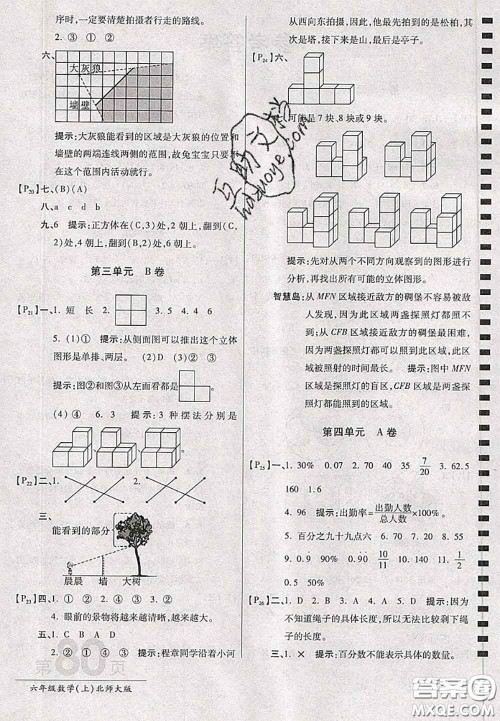 序，一定要清楚拍摄者行走的路线。
2. ③ ① ②
六、
大灰狼
墙壁
提示：大灰狼能看到的区域是大灰狼的位置和
墙壁的两端连线两侧的范围，故兔宝宝只要不在
这个范围内活动就行。
【P20】七、(B)(A)
八、a c d b
九、6 提示：正方体在(C,3)处，2朝上，到(C,
2)处，6朝上，到(D,2)处，4朝上。
第三单元 B卷
【P21】一、1. 短 长 2. 3. 5 4. 4 6
5. (1)① 提示：从侧面图可以推出这个立体
图形是单排、两层。 (2)④ (3)② ③
提示：图②和图③从左面看都是
(4)② ④ 提示：3种摆法分别是
【P22】二、
三、
能看到的部分
晨晨 墙 大树
【P23】四、1. ① ④ ③ ②
2. 眼前的景物将越来越清晰，越来越大。
五、C B A D 提示：程章同学是沿着小河
从西向东拍摄，首先拍摄到的是松柏，其
次是塔，接下来是山，最后是亭子。
【P24】六、
七、可能是7块、8块或9块。
提示：先对从两个不同方向观察到的图形进行分
析，找出所有可能的立体图形。
智慧岛：从MFN区域接近敌方的碉堡不容易被敌
人发现，因为从敌方碉堡的两盏探照灯
都照不到；从CFB区域接近碉堡最困难，
因为两盏探照灯都可以照到这一区域，
被照射的时间最长。提示：图中MFN区
域是两盏探照灯的盲区，CFB区域是两盏
探照灯都能照到的区域。
第四单元 A卷
【P25】一、1. 30% 0.07 2. 70 40 35 7/20 3. 62.5
160 1.6
4. 96 提示：出勤率=出勤人数/总人数×100%。
5. 百分之九十九点六
6. 1 0.09 90% 10/11 110% 40% 1/2
0.5 50%
【P26】二、1. D 2. A 3. D 4. D 提示：不知道绳
子的具体长度，所以无法比较剩下绳子
的具体长度。
5. D 提示：百分数不能表示具体的数量。
六年级数学(上)北师大版
第80页
互助文学
hdzuoye.com
答案圈
MXQE.COM